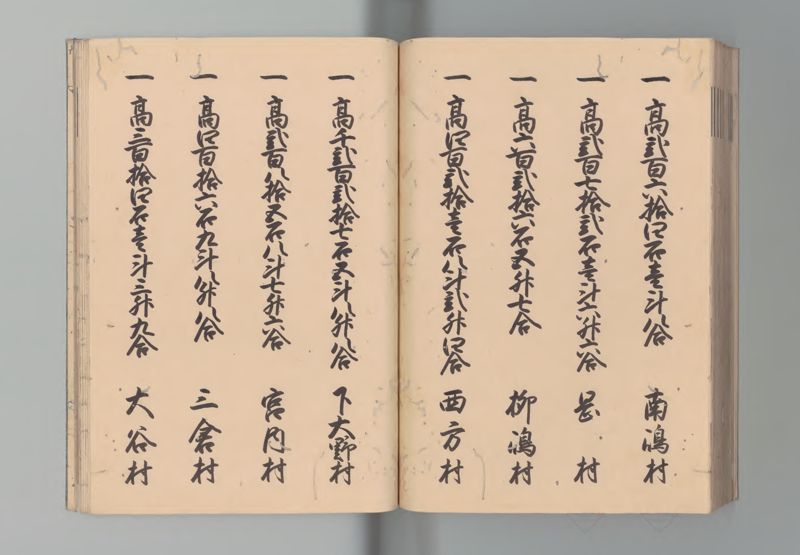 一 高弐百六拾四石壱斗八合 南嶋村
一 高弐百七拾弐石壱斗六升六合 邑 村
一 高六百弐拾六石五升七合 柳嶋村
一 高四百弐拾壱石八斗弐升四合 西方村
一 高千弐百弐拾七石五斗八升八合 下大野村
一 高弐百八拾五石八斗七升六合 宮内村
一 高四百拾六石九斗八升八合 三倉村
一 高三百拾四石壱斗三升九合 大谷村